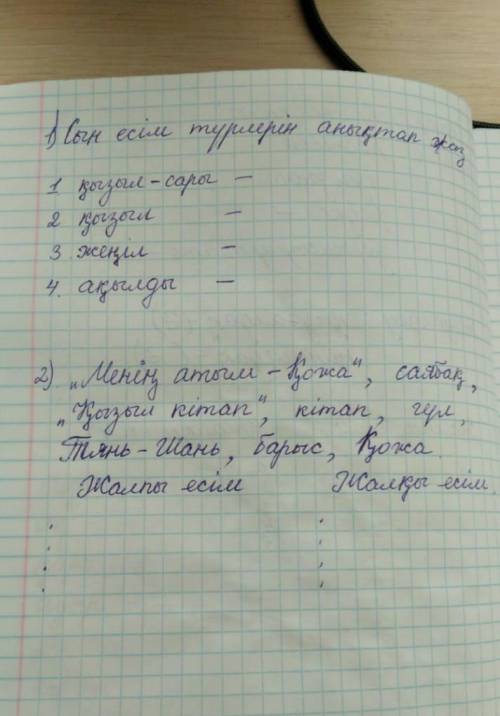 1) Сын есім түрлерін анықтап жаз
1 қызыл-сары –
2 қызыл –
3 жеңіл –
4. ақылды –
2) „Менің атым-Қожа", саябақ,
„Қызыл кітап", кітап, гүл,
Тянь-Шань, барыс, Қожа
Жалпы есім Жалқы есім